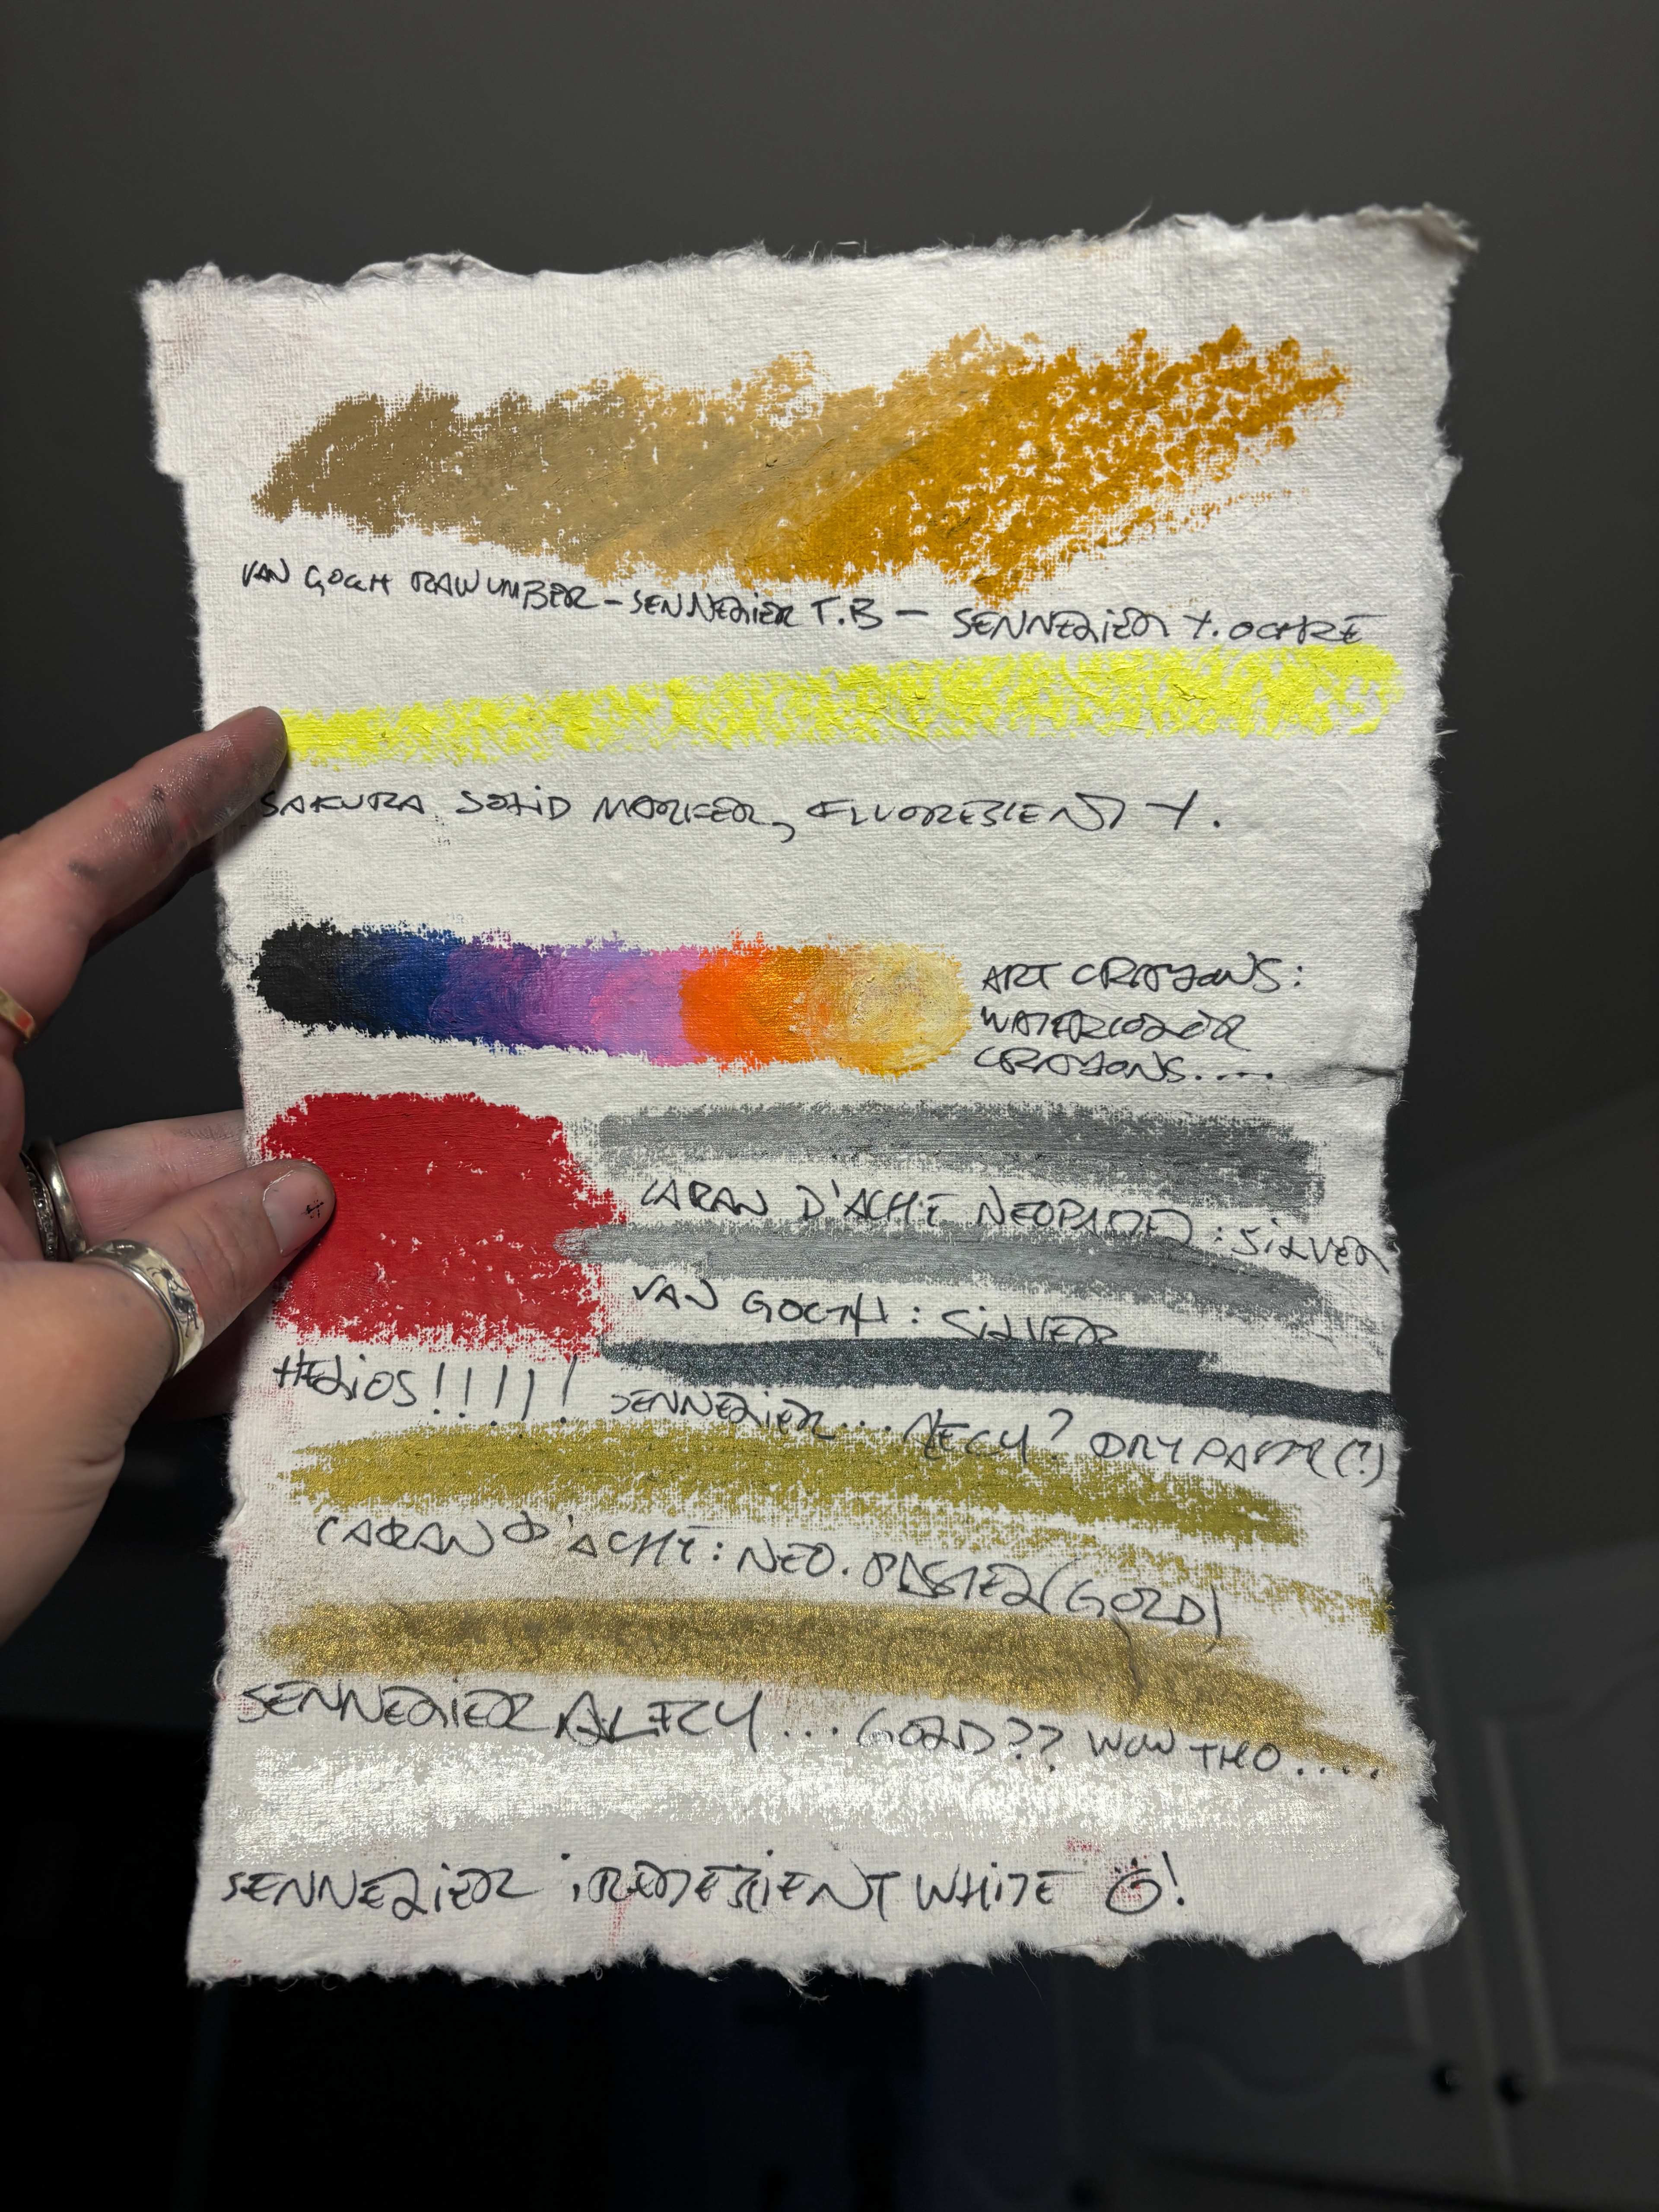 VAN GOGH RAW UMBER - SENNELIER T.B - SENNELIER Y. OCHRE
SAKURA SOLID MARKER, FLUORESCENT Y.
ART CRAYONS:
WATERCOLOR
CRAYONS.....
CARAN D'ACHE NEOPASTEL: SILVER
VAN GOGH: SILVER
HELIOS!!!!!
SENNELIER... DRY PASTEL(?)
CARAN D'ACHE: NEO. PASTEL (GOLD)
SENNELIER ... GOLD?? WOW THO....
SENNELIER IRIDESCENT WHITE ☺!